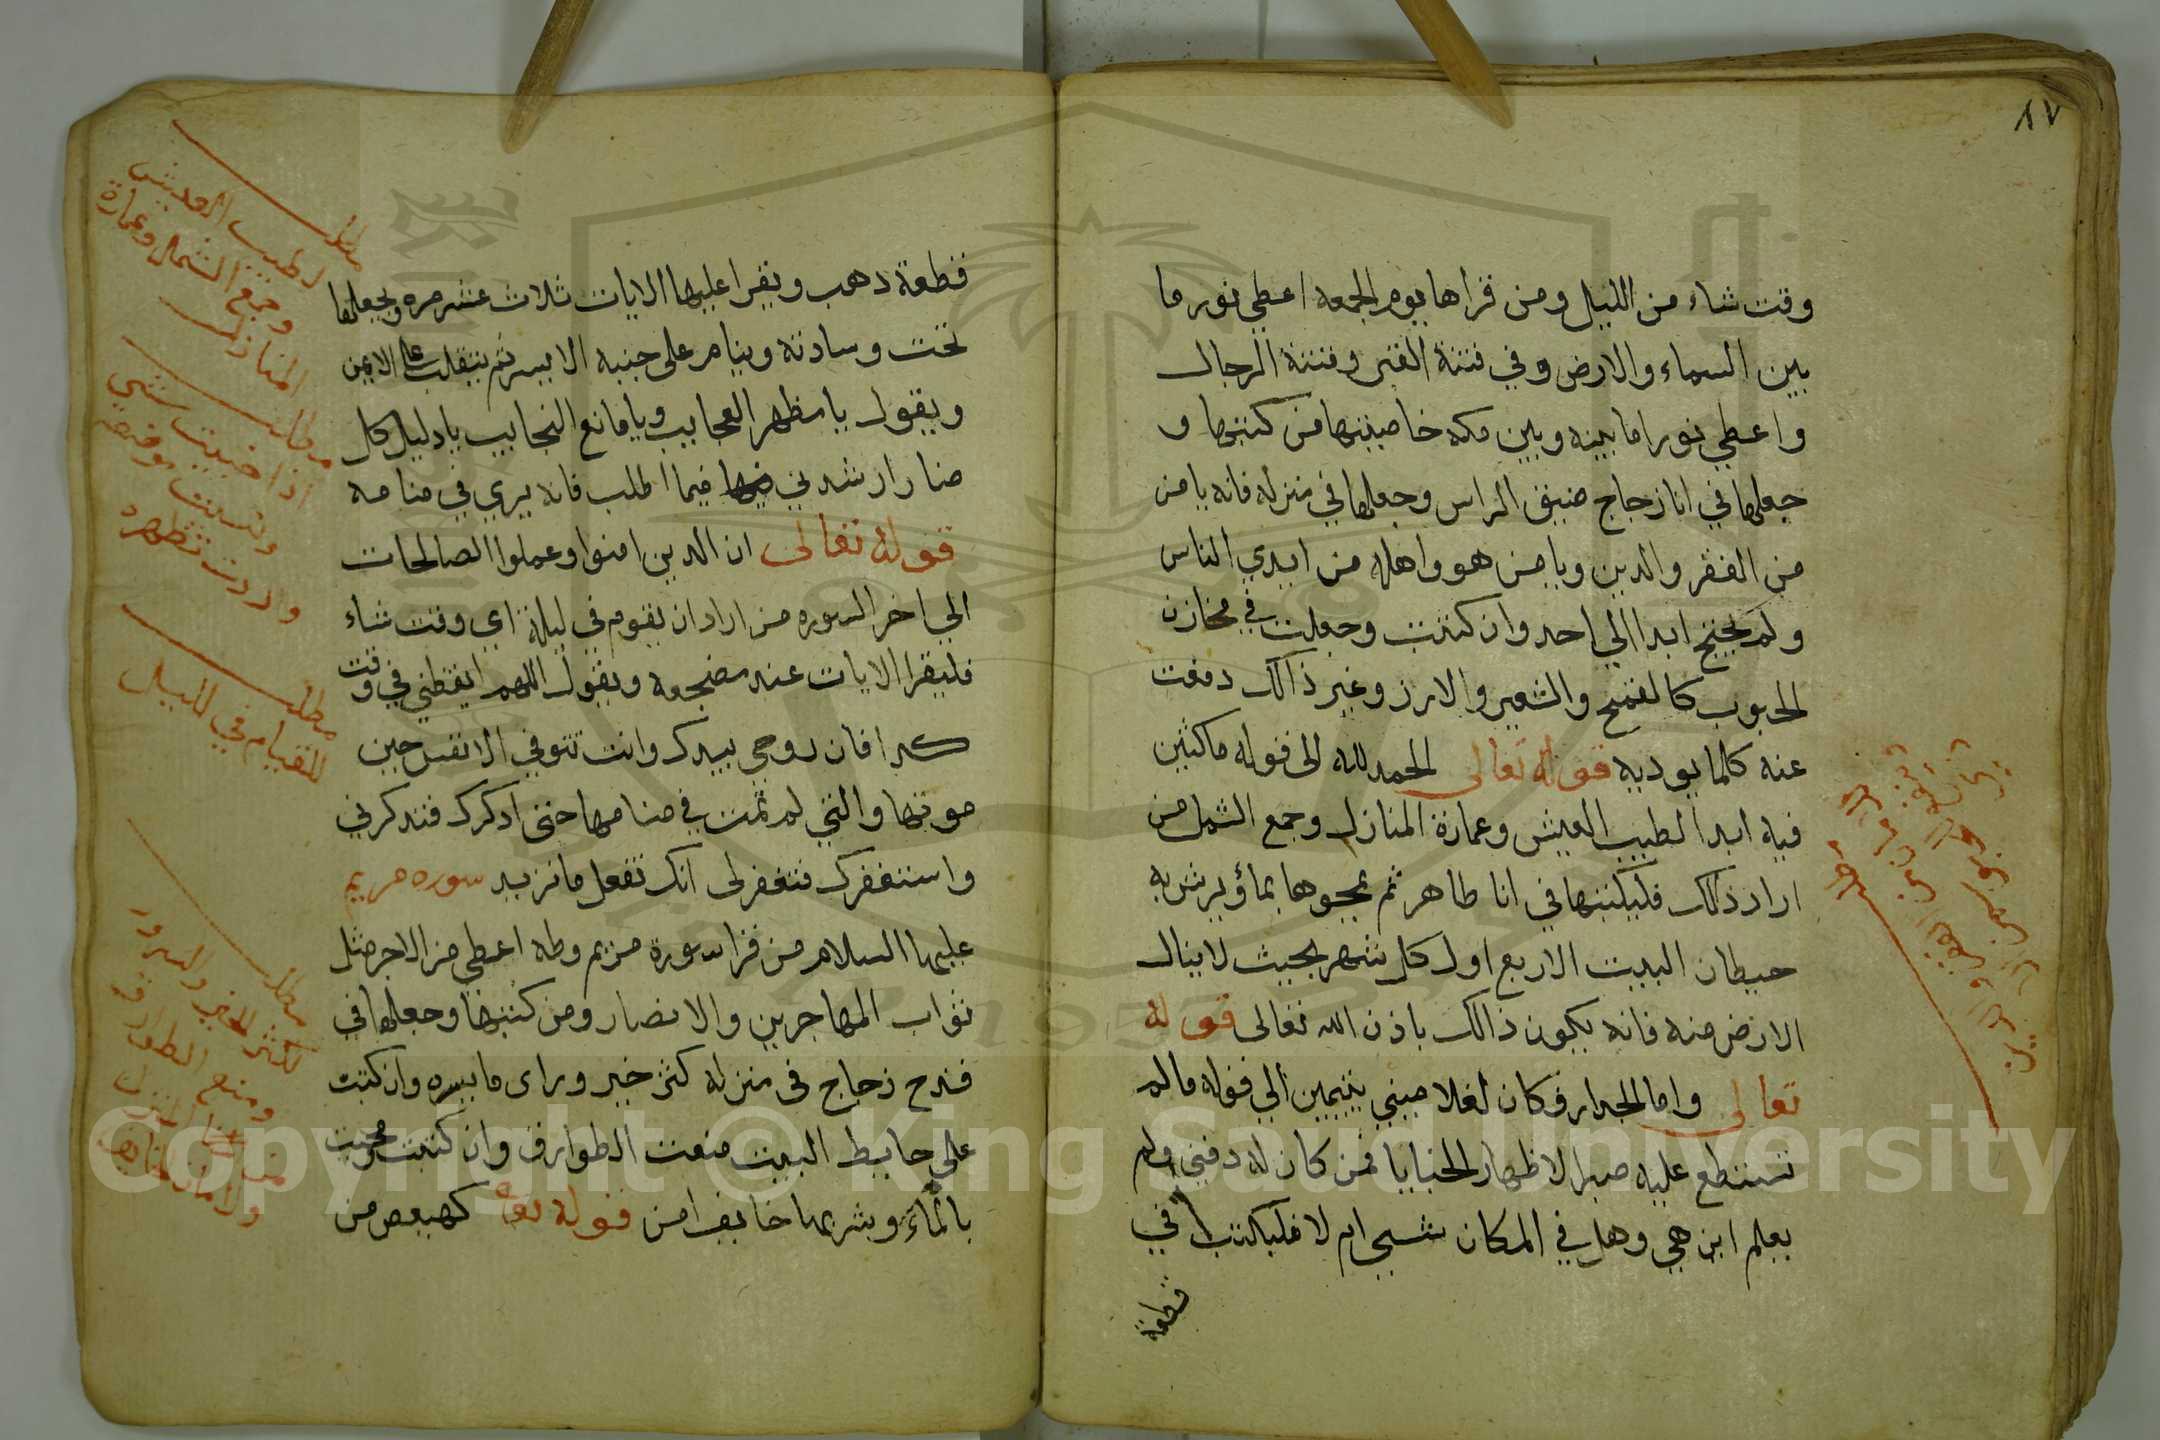 ٨٧
وقت شاء من الليل ومن قراها يوم الجمعه اعطي نور ما
بين السماء والارض وفي فتنة القبر وفتنة الرجال
واعطي نورا ما بينه وبين مكه خاصيتها من كتبها و
جعلها في انا زجاج ضيق الراس وجعلها في منزله فانه يامن
من الفقر والدين ويامن هو واهله من ايدي الناس
ولم يحتج ابدا الي احد وان كتبت وجعلت في مخازن
الحبوب كالقمح والشعير والارز وغير ذالك دفعت
عنه كلما يوديه قوله تعالى الحمد لله الى قوله ماكثين
فيه ابدا لطيب العيش وعمارة المنازل وجمع الشمل من
اراد ذالك فليكتبها في انا طاهر ثم يمحوها بماؤ يرش به
حيطان البيت الاربع اول كل شهر بحيث لا ينال
الارض منه فانه يكون ذالك باذن الله تعالى قوله
تعالى واما الجدار فكان لغلامين يتيمين الي قوله مالم
تستطع عليه صبرا لاظهار الخبايا فمن كان له دفين ولم
يعلم اين هي وهل في المكان شيي ام لا فليكتب في
قطعة
قطعة دهب ويقرا عليها الايات ثلاث عشر مره ويجعلها
تحت وسادته وينام على جنبه الايسر ثم ينقلب على الايمن
ويقول يا مظهر العجايب ويا مانع النجايب يا دليل كل
ضار ارشدني فيما اطلب فانه يري في منامه
قوله تعالى ان الدين امنوا وعملوا الصالحات
الي اخر السوره من اراد ان يقوم في ليلة اي وقت شاء
فليقرا الايات عند مضجعه ويقول اللهم ايقظني في وقت
كدا فان روحي بيدك وانت تتوفي الانفس حين
موتها والتي لم تمت في منامها حتى ادكرك فتدكرني
واستغفرك فتغفرلى انك تفعل ما تريد سوره مريم
عليها السلام من قرا سورة مريم وطه اعطي من الاجر مثل
ثواب المهاجرين والانصار ومن كتبها وجعلها في
قدح زجاج فى منزله كثر خير وراى ما يسره وان كتبت
على حايط البيت منعت الطوارق وان كتبت ومحيت
بالماء وشربها خايف امن قوله تعا كهيعص من
مطلب
لطيب العيش
وجمع الشمل وعمارة
المنازل
مطلب
اذا خبيت شي
ونسيت موضعه
واردت تظهره
مطلب
للقيام في الليل
مطلب
لكثر الخير والسرور
ومنع الطوارق